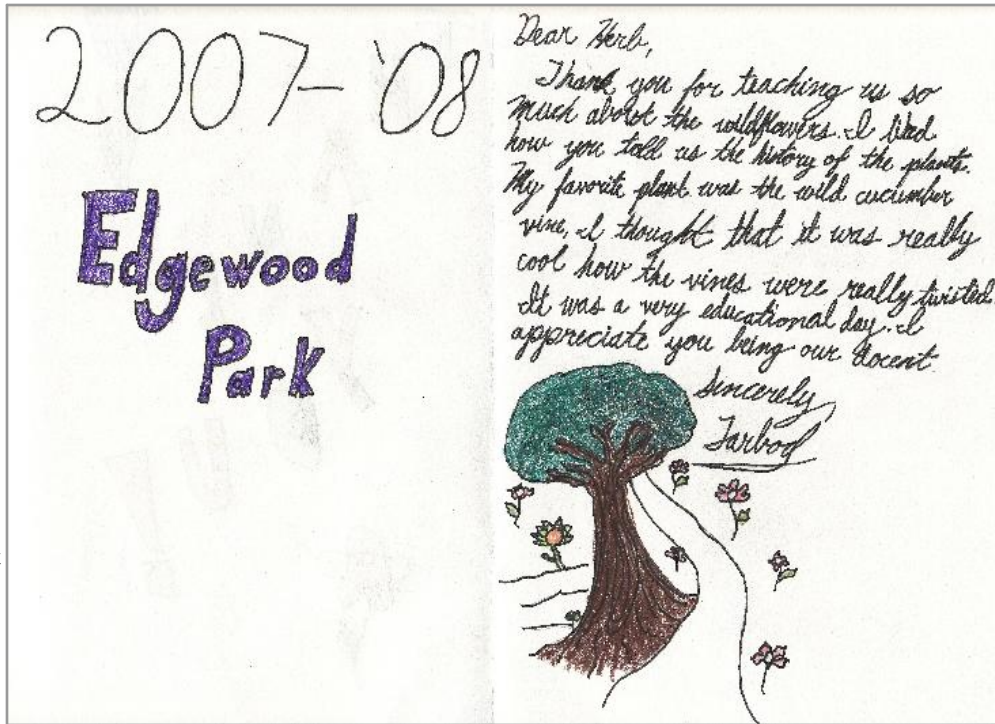 2007-'08
Edgewood
Park
Dear Herb,
Thank you for teaching us so
much about the wildflowers. I liked
how you told us the history of the plants.
My favorite plant was the wild cucumber
vine, I thought that it was really
cool how the vines were really twisted
It was a very educational day. I
appreciate you being our docent.
Sincerely,
Tarbod